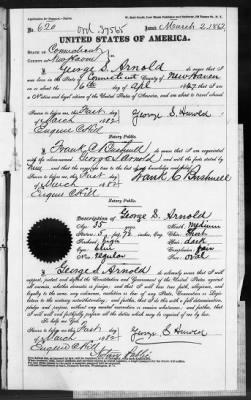 No. 620
Issued, March 2, 1882
UNITED STATES OF AMERICA.
STATE OF Connecticut
COUNTY OF New Haven
I, George S. Arnold do swear that I
was born in the State of Connecticut County of New Haven
on the 6th day of Apl 1847 that I am
a Native and loyal citizen of the United States of America, and am about to travel abroad.
Sworn to before me, this First day
of March 1882
George S. Arnold
Eugene C Hill
Notary Public.
I, Frank C. Bushnell do swear that I am acquainted
with the above-named George S. Arnold and with the facts stated by
Sworn to before me, this First day
of March 1882
Frank C Bushnell
Eugene C Hill
Notary Public.
Description of George S. Arnold
Age: 35 years
Stature: 5 feet
Mouth: medium
Forehead: high
Hair: dark
Eyes: blue
Nose: regular
Face: oval
I, George S. Arnold do solemnly swear that I will
support, protect and defend the Constitution and Government of the United States against
all enemies, whether domestic or foreign; and that I will bear true faith, allegiance, and
loyalty to the same, any ordinance, resolution or law of any State, Convention or Legislature
to the contrary notwithstanding; and further, that I do this with a full determination,
pledge and purpose, without any mental reservation or evasion whatsoever; and further, that
I will well and faithfully perform all the duties which may be required of me by law.
So help me God.
Sworn to before me, this First day
of March 1882
George S Arnold
Eugene C Hill
Notary Public